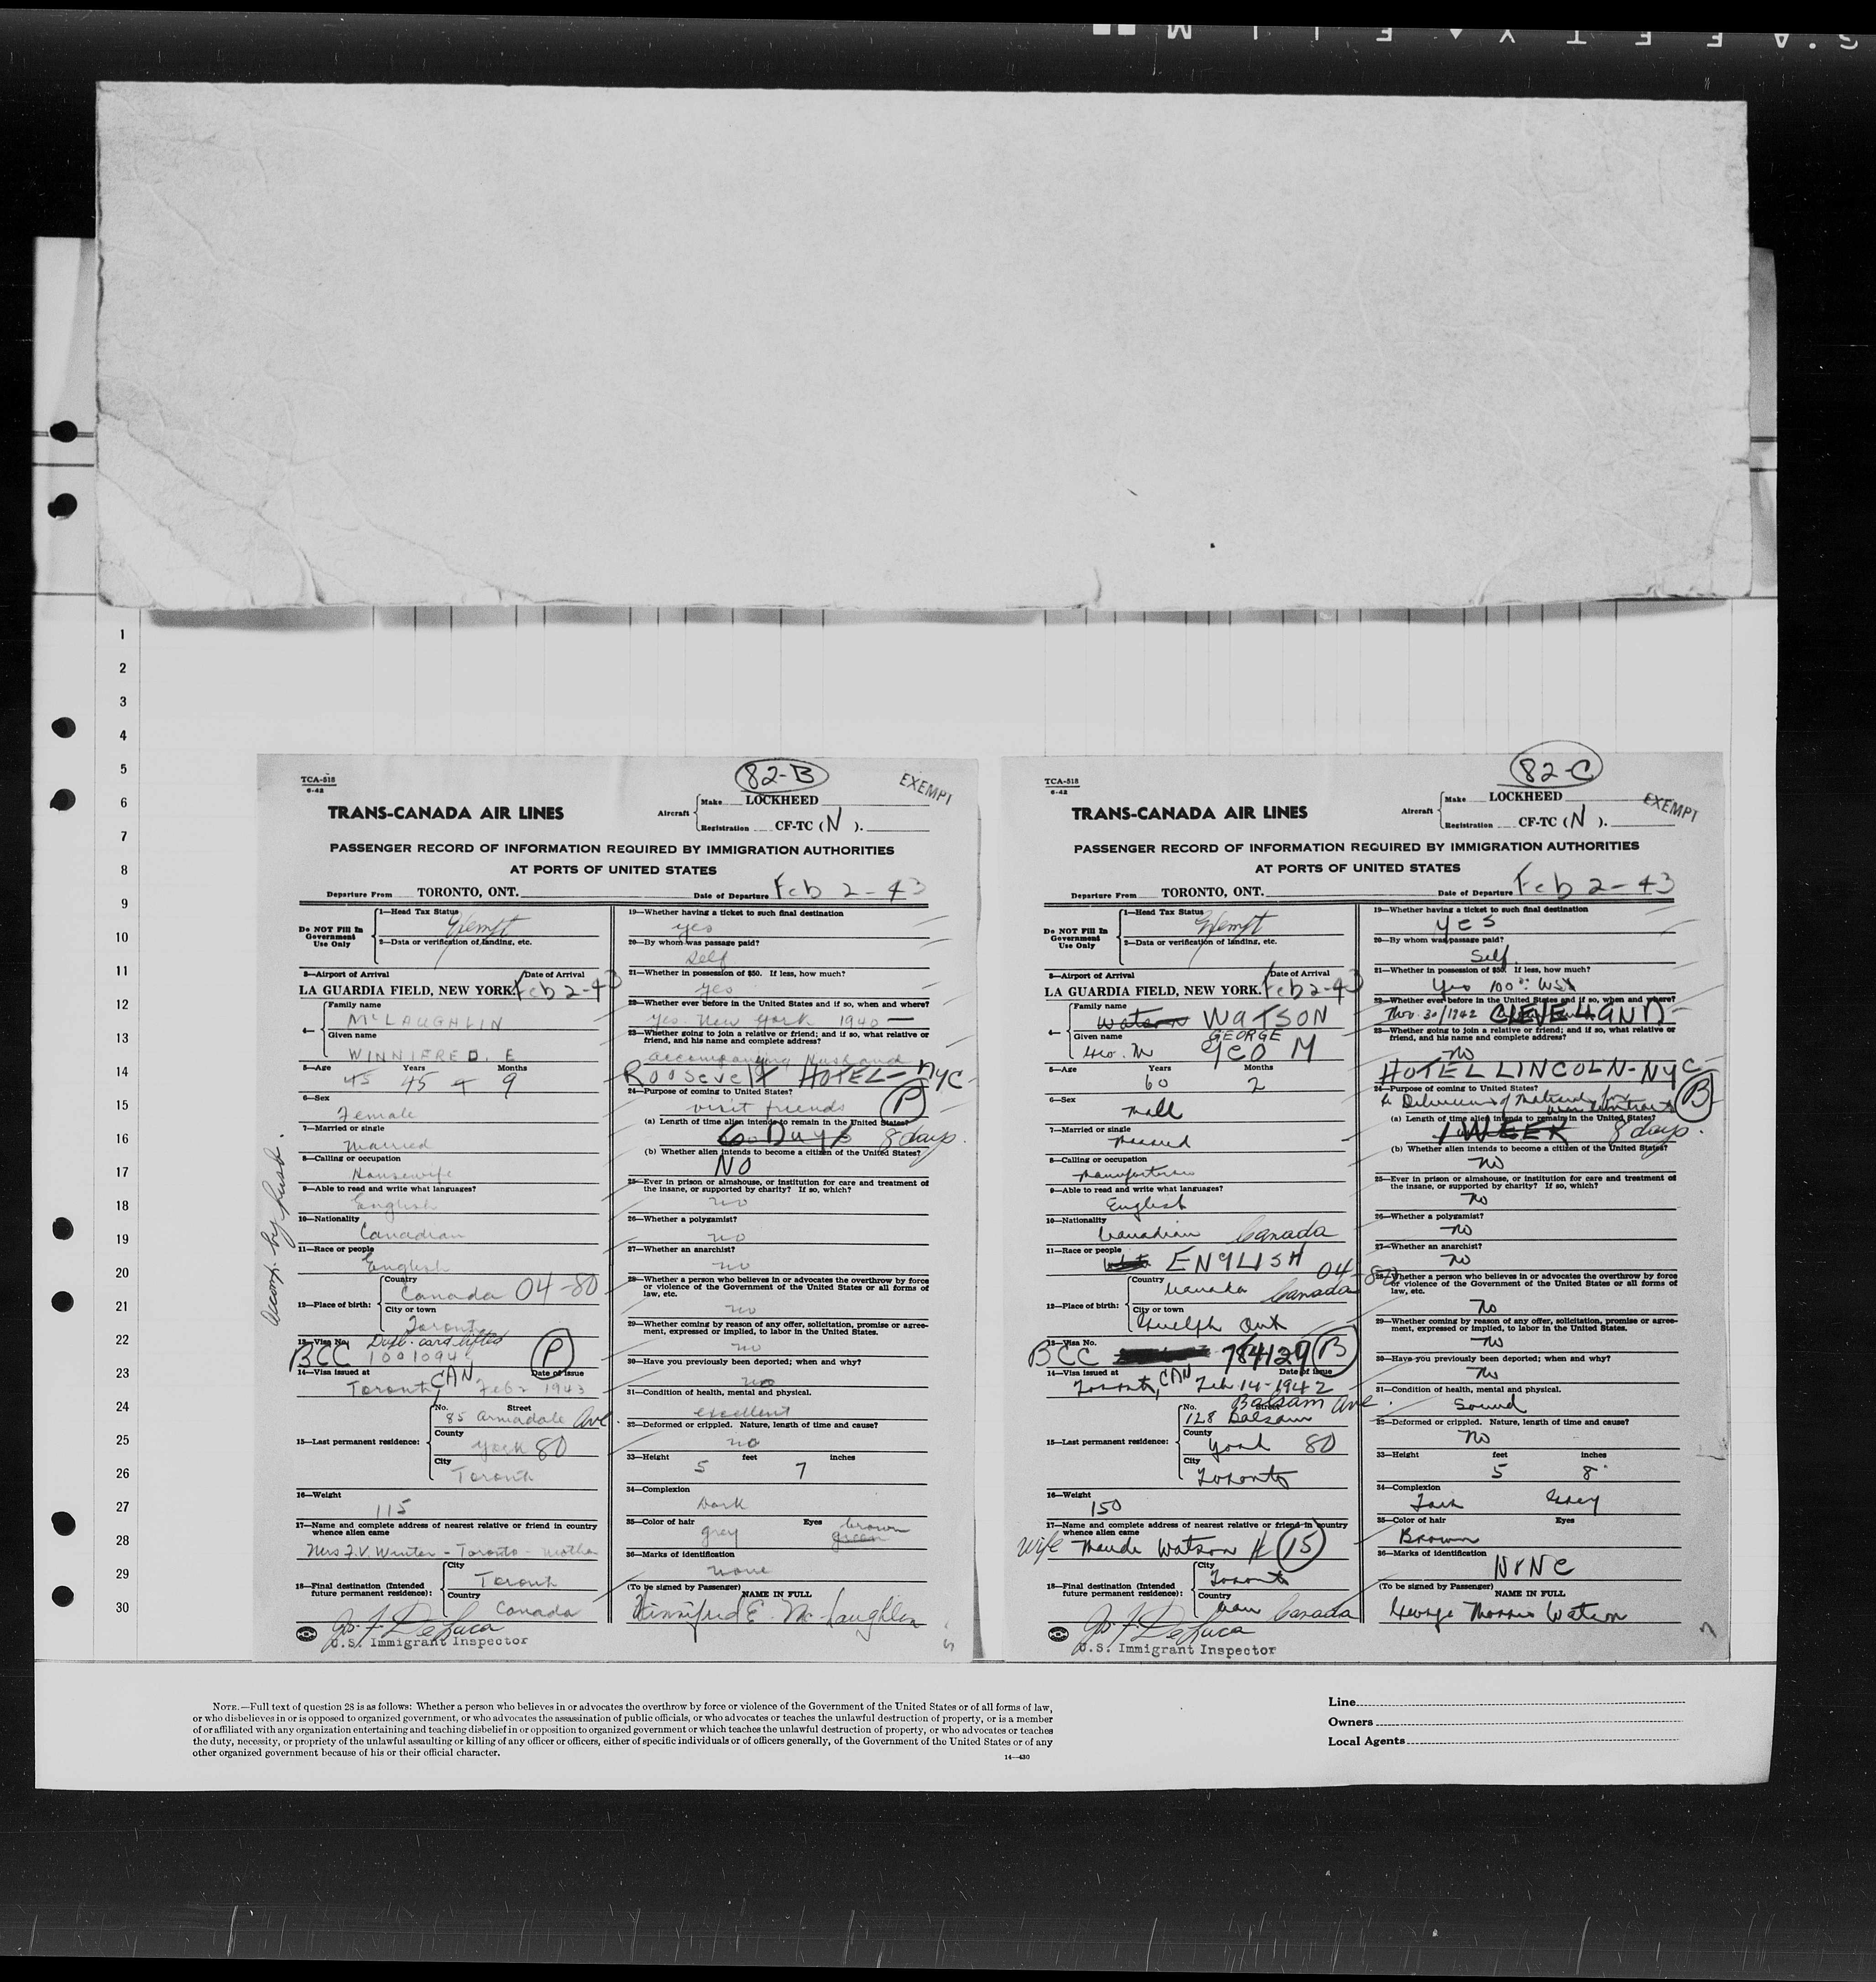 SAFETY FILM
1
2
3
4
5
6
7
8
9
10
11
12
13
14
15
16
17
18
19
20
21
22
23
24
25
26
27
28
29
30
TCA-518
6-42
82-B
EXEMPT
TRANS-CANADA AIR LINES
Aircraft Make LOCKHEED
Registration CF-TC (N).
PASSENGER RECORD OF INFORMATION REQUIRED BY IMMIGRATION AUTHORITIES
AT PORTS OF UNITED STATES
Departure From TORONTO, ONT. Date of Departure Feb 2-43
Do NOT Fill In Government Use Only
1—Head Tax Status Exempt
2—Data or verification of landing, etc.
3—Airport of Arrival Date of Arrival
LA GUARDIA FIELD, NEW YORK. Feb 2-43
4— Family name
McLAUGHLIN
Given name
WINNIFRED. E
5—Age Years Months
45 45 + 9
6—Sex
Female
7—Married or single
Married
8—Calling or occupation
Housewife
9—Able to read and write what languages?
English
10—Nationality
Canadian
11—Race or people
English
12—Place of birth: Country
Canada 04-80
City or town
Toronto
Accomp. by husb.
13—Visa No. Dupl. card lifted
BCC 1001094 P
14—Visa issued at Date of issue
Toronto, CAN Feb 2 1943
15—Last permanent residence: No. Street
85 Armadale Ave.
County
York 80
City
Toronto
16—Weight
115
17—Name and complete address of nearest relative or friend in country whence alien came
Mrs F.V. Winter - Toronto - mother
18—Final destination (Intended future permanent residence): City
Toronto
Country
Canada
Jos. F. DeLuca
U.S. Immigrant Inspector
19—Whether having a ticket to such final destination
yes
20—By whom was passage paid?
Self
21—Whether in possession of $50. If less, how much?
yes
22—Whether ever before in the United States and if so, when and where?
yes. New York 1940 —
23—Whether going to join a relative or friend; and if so, what relative or friend, and his name and complete address?
accompanying Husband
Roosevelt HOTEL - NYC
24—Purpose of coming to United States?
visit friends P
(a) Length of time alien intends to remain in the United States?
6 Days 8 days.
(b) Whether alien intends to become a citizen of the United States?
NO
25—Ever in prison or almshouse, or institution for care and treatment of the insane, or supported by charity? If so, which?
no
26—Whether a polygamist?
no
27—Whether an anarchist?
no
28—Whether a person who believes in or advocates the overthrow by force or violence of the Government of the United States or all forms of law, etc.
no
29—Whether coming by reason of any offer, solicitation, promise or agreement, expressed or implied, to labor in the United States.
no
30—Have you previously been deported; when and why?
no
31—Condition of health, mental and physical.
excellent
32—Deformed or crippled. Nature, length of time and cause?
no
33—Height feet inches
5 7
34—Complexion
Dark
35—Color of hair Eyes
grey brown green
36—Marks of identification
none
(To be signed by Passenger) NAME IN FULL
Winnifred E. McLaughlin
TCA-518
6-42
82-C
EXEMPT
TRANS-CANADA AIR LINES
Aircraft Make LOCKHEED
Registration CF-TC (N).
PASSENGER RECORD OF INFORMATION REQUIRED BY IMMIGRATION AUTHORITIES
AT PORTS OF UNITED STATES
Departure From TORONTO, ONT. Date of Departure Feb 2-43
Do NOT Fill In Government Use Only
1—Head Tax Status Exempt
2—Data or verification of landing, etc.
3—Airport of Arrival Date of Arrival
LA GUARDIA FIELD, NEW YORK. Feb 2-43
4— Family name
Watson WATSON
Given name GEORGE
Geo. M GEO M
5—Age Years Months
60 2
6—Sex
Male
7—Married or single
Married
8—Calling or occupation
Manufacturer
9—Able to read and write what languages?
English
10—Nationality
Canadian Canada
11—Race or people
ENGLISH
12—Place of birth: Country 04-80
Canada Canada
City or town
Guelph Ont
13—Visa No.
BCC 784129 B
14—Visa issued at Date of issue
Toronto, CAN Feb 14-1942
15—Last permanent residence: No. Street Balsam Ave.
128 Balsam
County
York 80
City
Toronto
16—Weight
150
17—Name and complete address of nearest relative or friend in country whence alien came
Wife Maude Watson # 15
18—Final destination (Intended future permanent residence): City
Toronto
Country
Canada
Jos. F. DeLuca
U.S. Immigrant Inspector
19—Whether having a ticket to such final destination
YES
20—By whom was passage paid?
Self.
21—Whether in possession of $50. If less, how much?
Yes 100
22—Whether ever before in the United States and if so, when and where?
Nov. 30/1942 CLEVELAND
23—Whether going to join a relative or friend; and if so, what relative or friend, and his name and complete address?
no
HOTEL LINCOLN - NYC
24—Purpose of coming to United States?
of material for war contracts B
(a) Length of time alien intends to remain in the United States?
1 WEEK 8 days.
(b) Whether alien intends to become a citizen of the United States?
no
25—Ever in prison or almshouse, or institution for care and treatment of the insane, or supported by charity? If so, which?
no
26—Whether a polygamist?
no
27—Whether an anarchist?
no
28—Whether a person who believes in or advocates the overthrow by force or violence of the Government of the United States or all forms of law, etc.
no
29—Whether coming by reason of any offer, solicitation, promise or agreement, expressed or implied, to labor in the United States.
no
30—Have you previously been deported; when and why?
no
31—Condition of health, mental and physical.
Sound
32—Deformed or crippled. Nature, length of time and cause?
no
33—Height feet inches
5 8
34—Complexion
Fair Grey
35—Color of hair Eyes
Brown
36—Marks of identification
NONE
(To be signed by Passenger) NAME IN FULL
George Morris Watson
NOTE.—Full text of question 28 is as follows: Whether a person who believes in or advocates the overthrow by force or violence of the Government of the United States or of all forms of law,
or who disbelieves in or is opposed to organized government, or who advocates the assassination of public officials, or who advocates or teaches the unlawful destruction of property, or is a member
of or affiliated with any organization entertaining and teaching disbelief in or opposition to organized government or which teaches the unlawful destruction of property, or who advocates or teaches
the duty, necessity, or propriety of the unlawful assaulting or killing of any officer or officers, either of specific individuals or of officers generally, of the Government of the United States or of any
other organized government because of his or their official character.
14—430
Line
Owners
Local Agents